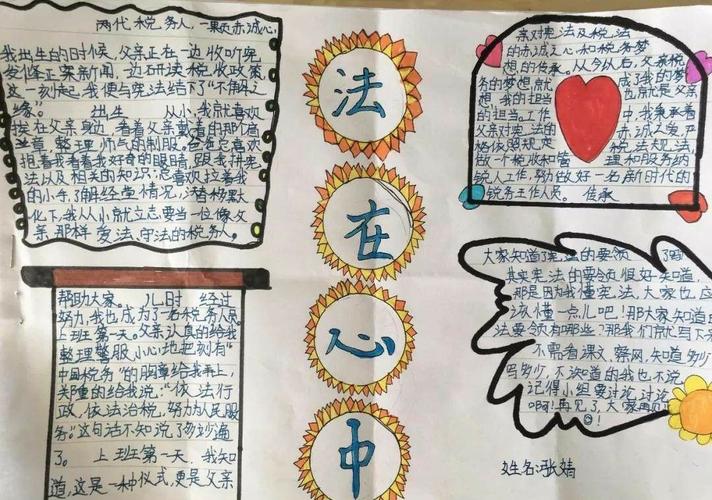 两代税务人,一颗赤诚心
我出生的时候,父亲正在一边收听宪
法修正案新闻,一边研读税收政策
这一刻起,我便与宪法结下了"不解之
缘"。 出生 从小,我就喜欢
挨在父亲身边,看着父亲戴着的那
章,整理帅气的制服。爸爸总喜欢
抱着我看着我好奇的眼睛,跟我讲宪
法以及相关的知识;总喜欢拉着我
的小手,了解经营情况,潜移默
化下,我从小就立志要当一位像父
亲那样爱法、守法的税务人。
帮助大家。 儿时 经过
努力,我也成为了名税务人员。
上班第一天。父亲认真的给我
整理警服,小心地把刻有"
中国税务"的胸章给我再上,
关重的给我说:"依法行
政,依法治税,努力为人民服
务"这句话不知说了多少遍
了。 上班第一天 我知
道,这是一种仪式,更是父亲
法
在
心
中
亲对宪法及税法
的赤诚之心和税务梦
想的传承。从今以后,父亲税
务的梦想就 成了我的梦
想,我的担当 就是父亲
的担当。工作 中,我秉承着
父亲对宪法的 赤诚之爱,严
格依照规定 税法规法,
做一个税收和管 理和服务纳
税人工作,努力做好一名新时代的
税务工作人员。 传承
大家知道了宪法的要领
其实宪法的要领很好知道,
那是因为我懂宪法,大家也应
该懂一点儿吧!那大家知道
法要领有哪些?那我们就写下来
不需看课文,察网,知道多少
写多少,不知道的我也不说
记得小组要讨论,讨论
啊!再见了,大家再见
姓名:张婧